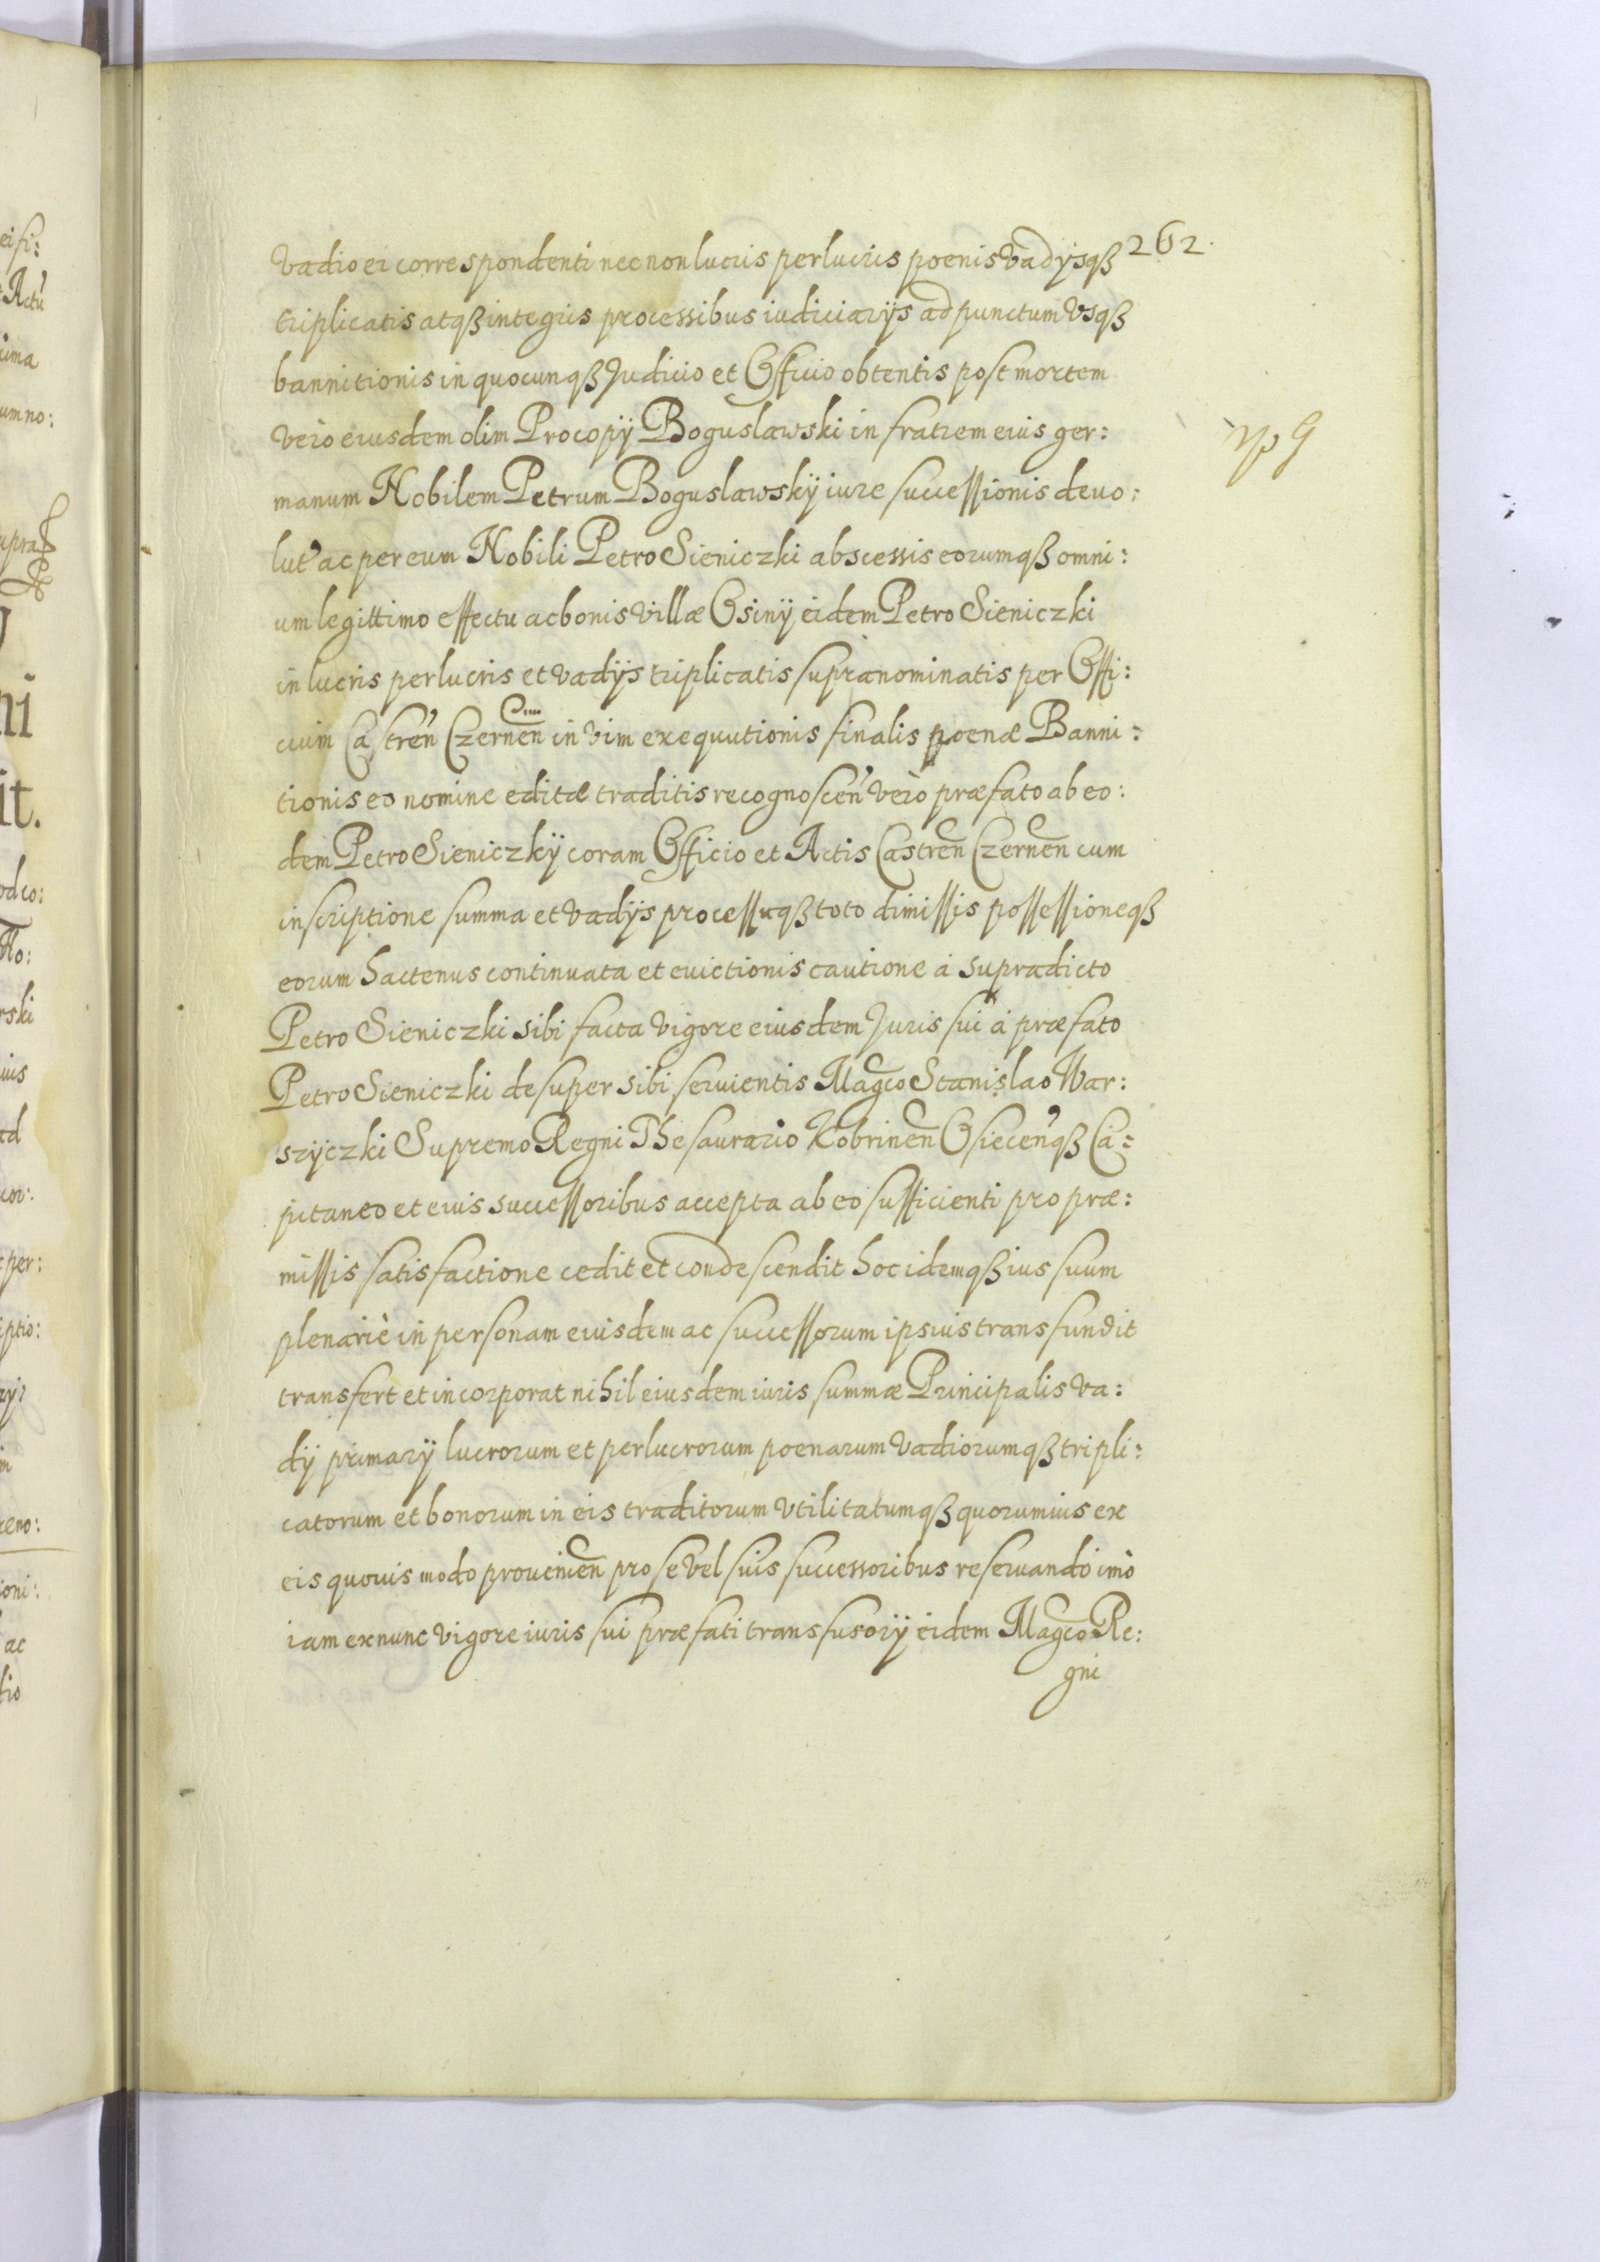 262.
Vadio ei correspondenti nec non lucris perlucris poenis Vadÿsqß
triplicatis atqß integris processibus iudiciarÿs ad punctum Vsqß
bannitionis in quocunqß Judicio et Officio obtentis post mortem
Verò eiusdem olim Procopÿ Boguslawski in fratrem eius ger:
manum Nobilem Petrum Boguslawskÿ iure successionis deuo:
lut' ac per eum Nobili Petro Sieniczki abscessis eorumqß omni:
um legittimo effectu ac bonis Villæ Osinÿ eidem Petro Sieniczki
in lucris perlucris et Vadÿs triplicatis supranominatis per Offi:
cium Castren' Czernen in Vim exequutionis finalis poenæ Banni:
tionis eo nomine editæ traditis recognoscen' Verò præfato ab eo:
dem Petro Sieniczkÿ coram Officio et Actis Castren Czernen cum
inscriptione summa et Vadÿs processuqß toto dimissis possessioneqß
eorum hactenus continuata et euictionis cautione à supradicto
Petro Sieniczki sibi facta Vigore eiusdem Juris sui à præfato
Petro Sieniczki desuper sibi seruientis Magco Stanislao War:
szÿczki Supremo Regni Thesaurario Kobrinen Osiecen'qß Ca:
pitaneo et eius successoribus accepta ab eo sufficienti pro præ:
missis satisfactione cedit et condescendit hoc idemqß ius suum
plenariè in personam eiusdem ac successorum ipsius transfundit
transfert et incorporat nihil eiusdem iuris summæ Principalis Va:
dÿ primarÿ lucrorum et perlucrorum poenarum Vadiorumqß tripli:
catorum et bonorum in eis traditorum Vtilitatumqß quorumuis ex
eis quouis modo prouenien pro se Vel suis successoribus reseruando imò
iam ex nunc Vigore iuris sui præfati transfusorÿ eidem Magco Re:
gni